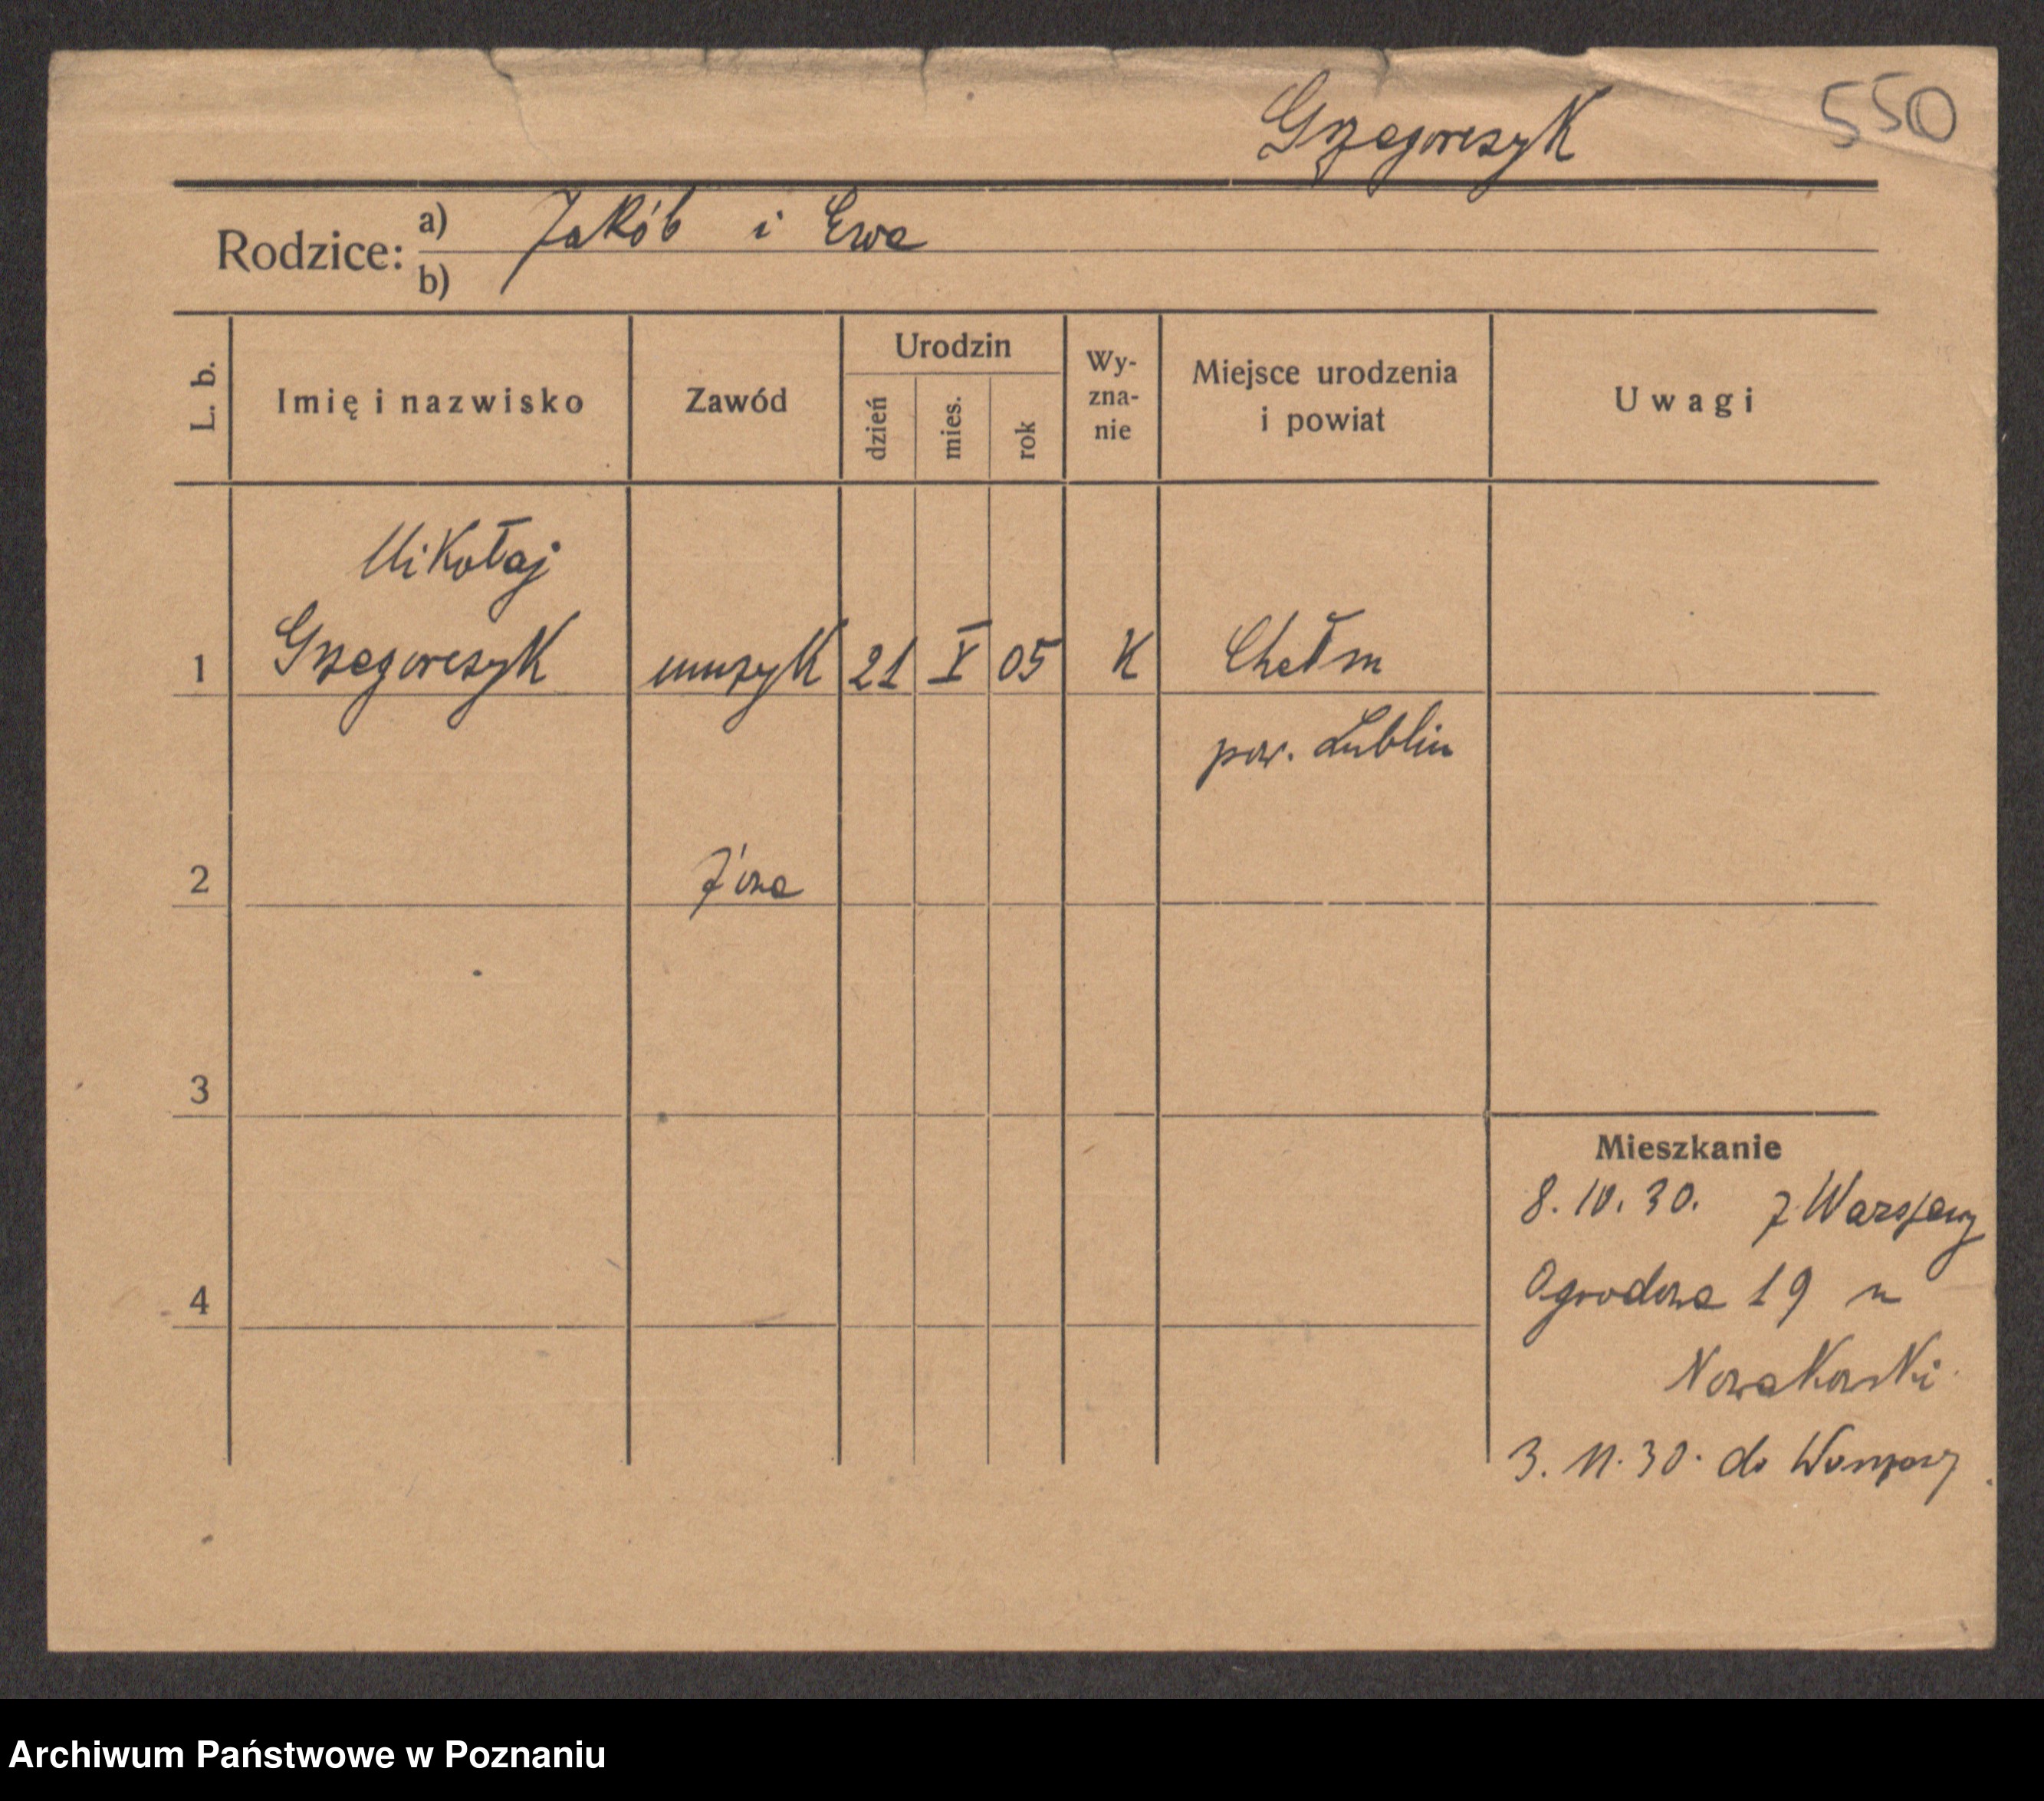 Grzegorczyk 550
Rodzice: a) Jakób i Ewa
b)
L. b. Imię i nazwisko Zawód Urodzin dzień mies. rok Wy-zna-nie Miejsce urodzenia i powiat Uwagi
Mikołaj
1 Grzegorczyk muzyk 21 V 05 K Chełm
pow. Lublin
2
3
Mieszkanie
8. 10. 30. z Warszawy
4 Ogrodowa 19 u
Nowakowski
3. 11. 30. do Warszawy
Archiwum Państwowe w Poznaniu